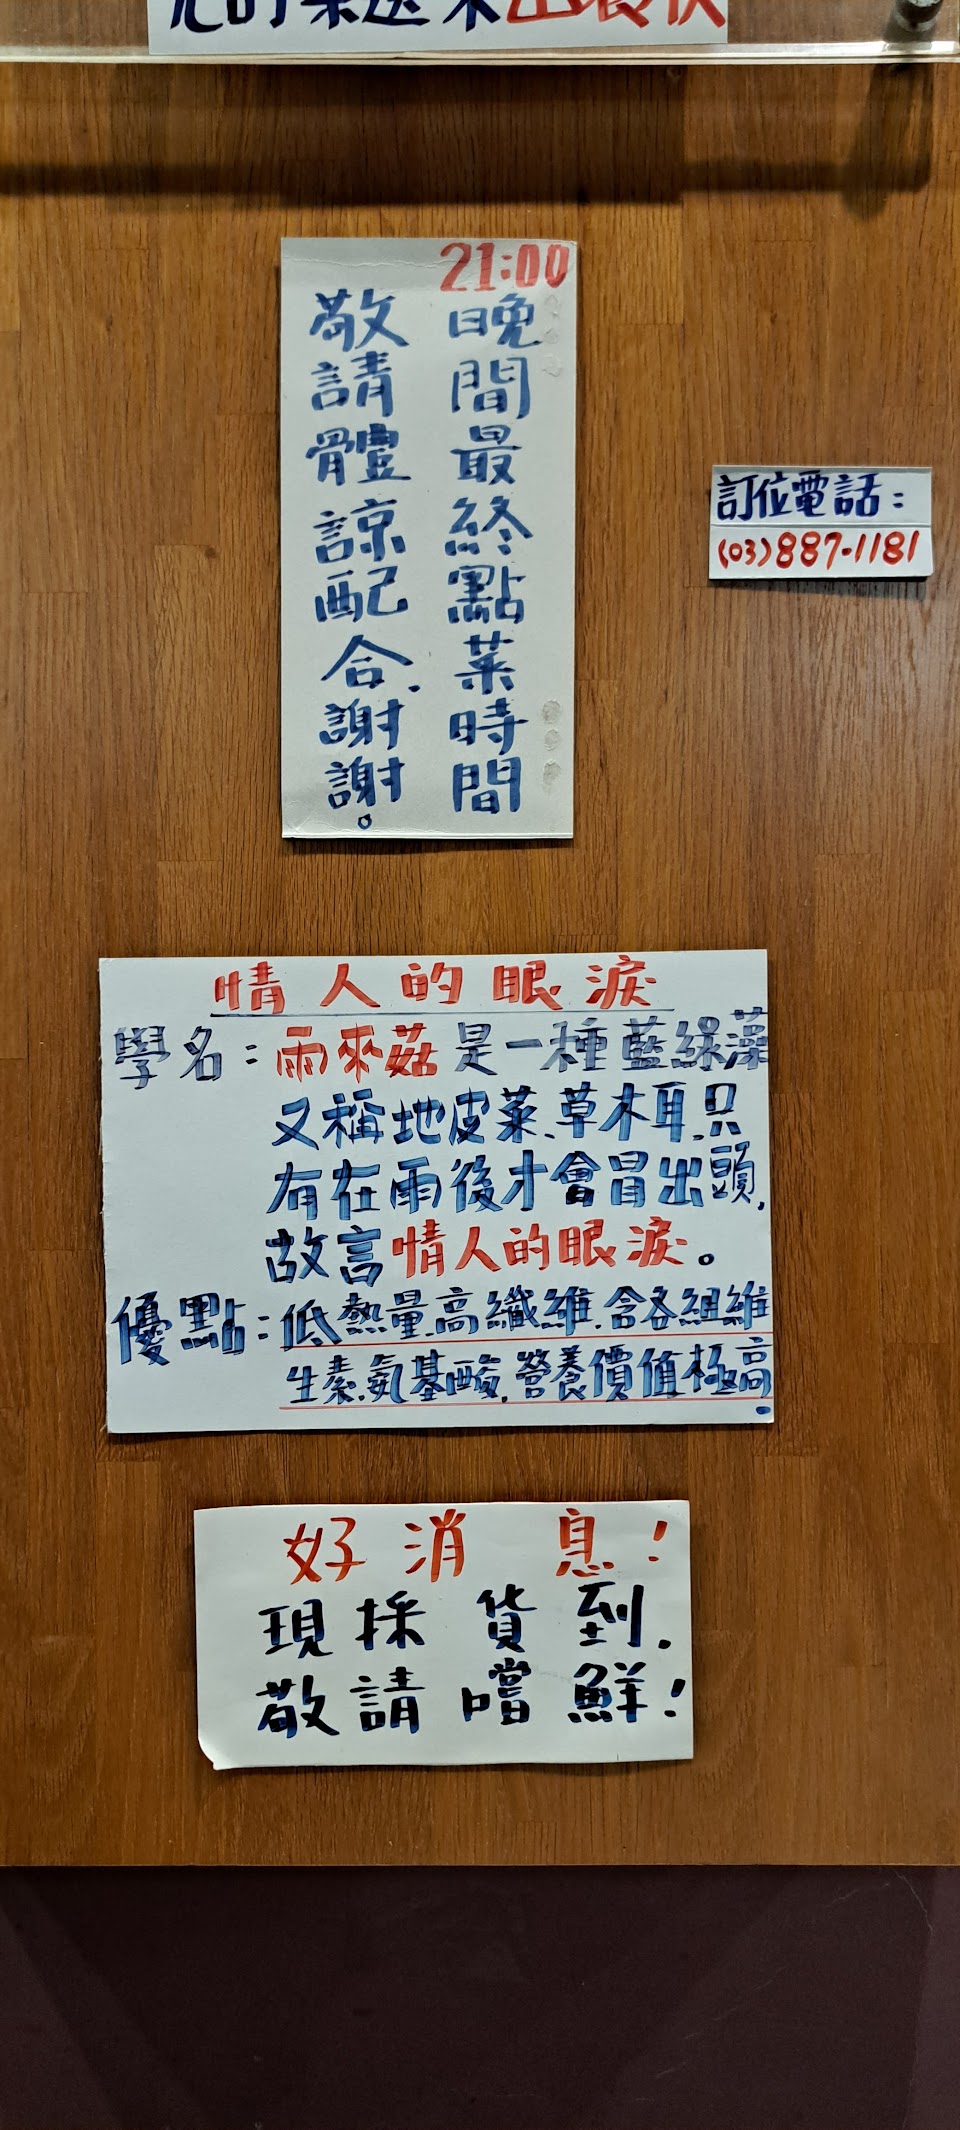 21:00
晚間最終點菜時間
敬請體諒配合.謝謝。
訂位電話:
(03)887-1181
情人的眼淚
學名:雨來菇是一種藍綠藻
又稱地皮菜.草木耳.只
有在雨後才會冒出頭,
故言情人的眼淚。
優點:低熱量.高纖維.含各組維
生素.氨基酸.營養價值極高.
好消息!
現採貨到.
敬請嚐鮮!